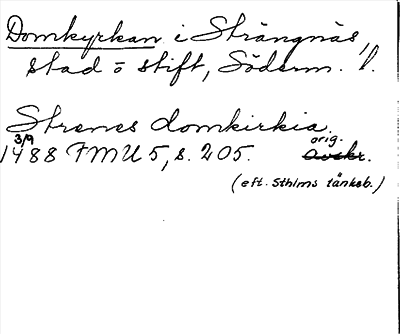 Domkyrkan i Strängnäs,
stad o stift, Söderm. l.
Strenes domkirkia.
3/9 orig.
1488 FMU 5, s. 205. Avskr.
(eft. Sthlms tänkeb.)